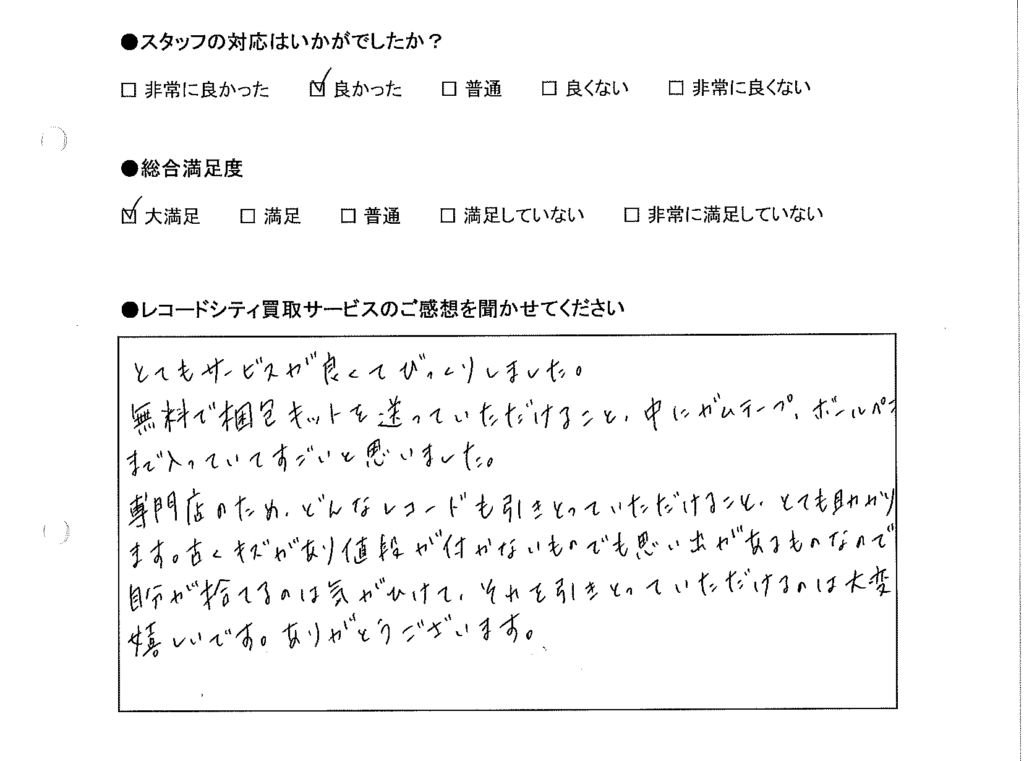 ●スタッフの対応はいかがでしたか？
□ 非常に良かった ☑ 良かった □ 普通 □ 良くない □ 非常に良くない
●総合満足度
☑ 大満足 □ 満足 □ 普通 □ 満足していない □ 非常に満足していない
●レコードシティ買取サービスのご感想を聞かせてください
とてもサービスが良くてびっくりしました。
無料で梱包キットを送っていただけること、中にガムテープ、ボールペン
まで入っていてすごいと思いました。
専門店のため、どんなレコードも引きとっていただけること、とても助かり
ます。古くキズがあり値段が付かないものでも思い出があるものなので
自分が捨てるのは気がひけて、それを引きとっていただけるのは大変
嬉しいです。ありがとうございます。